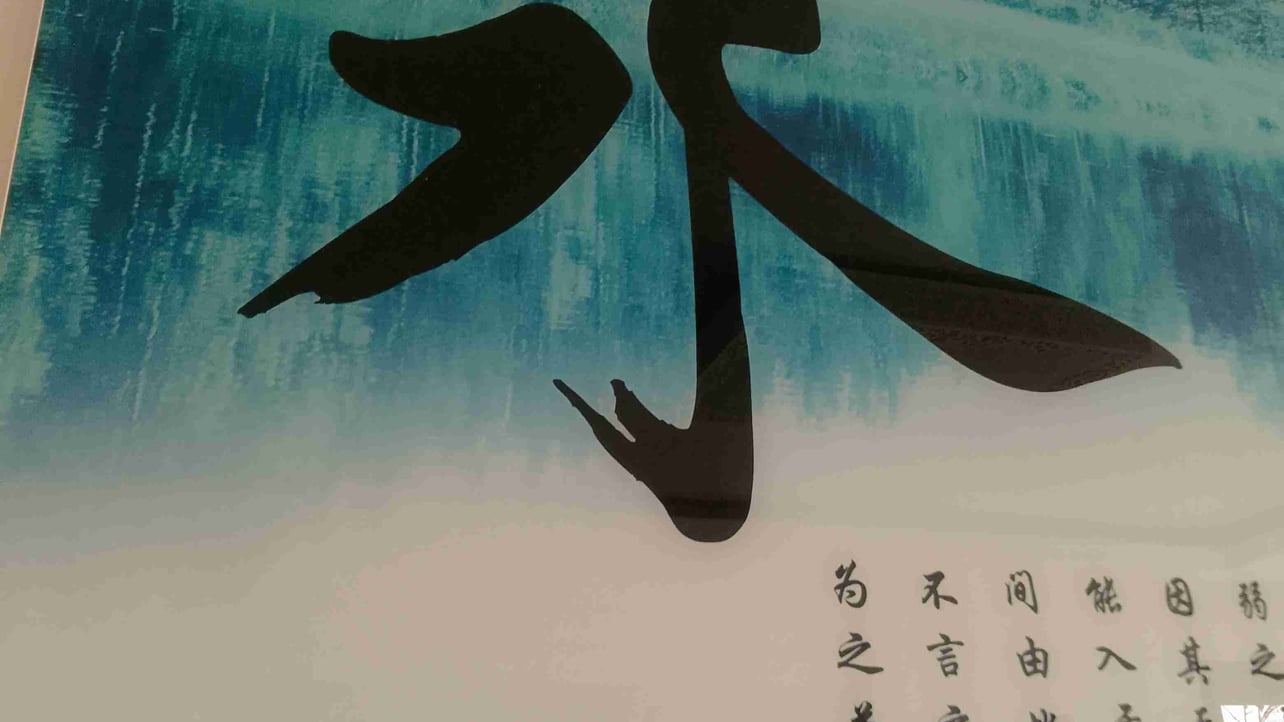 水
弱之
因其
能入
间由
不言
为之